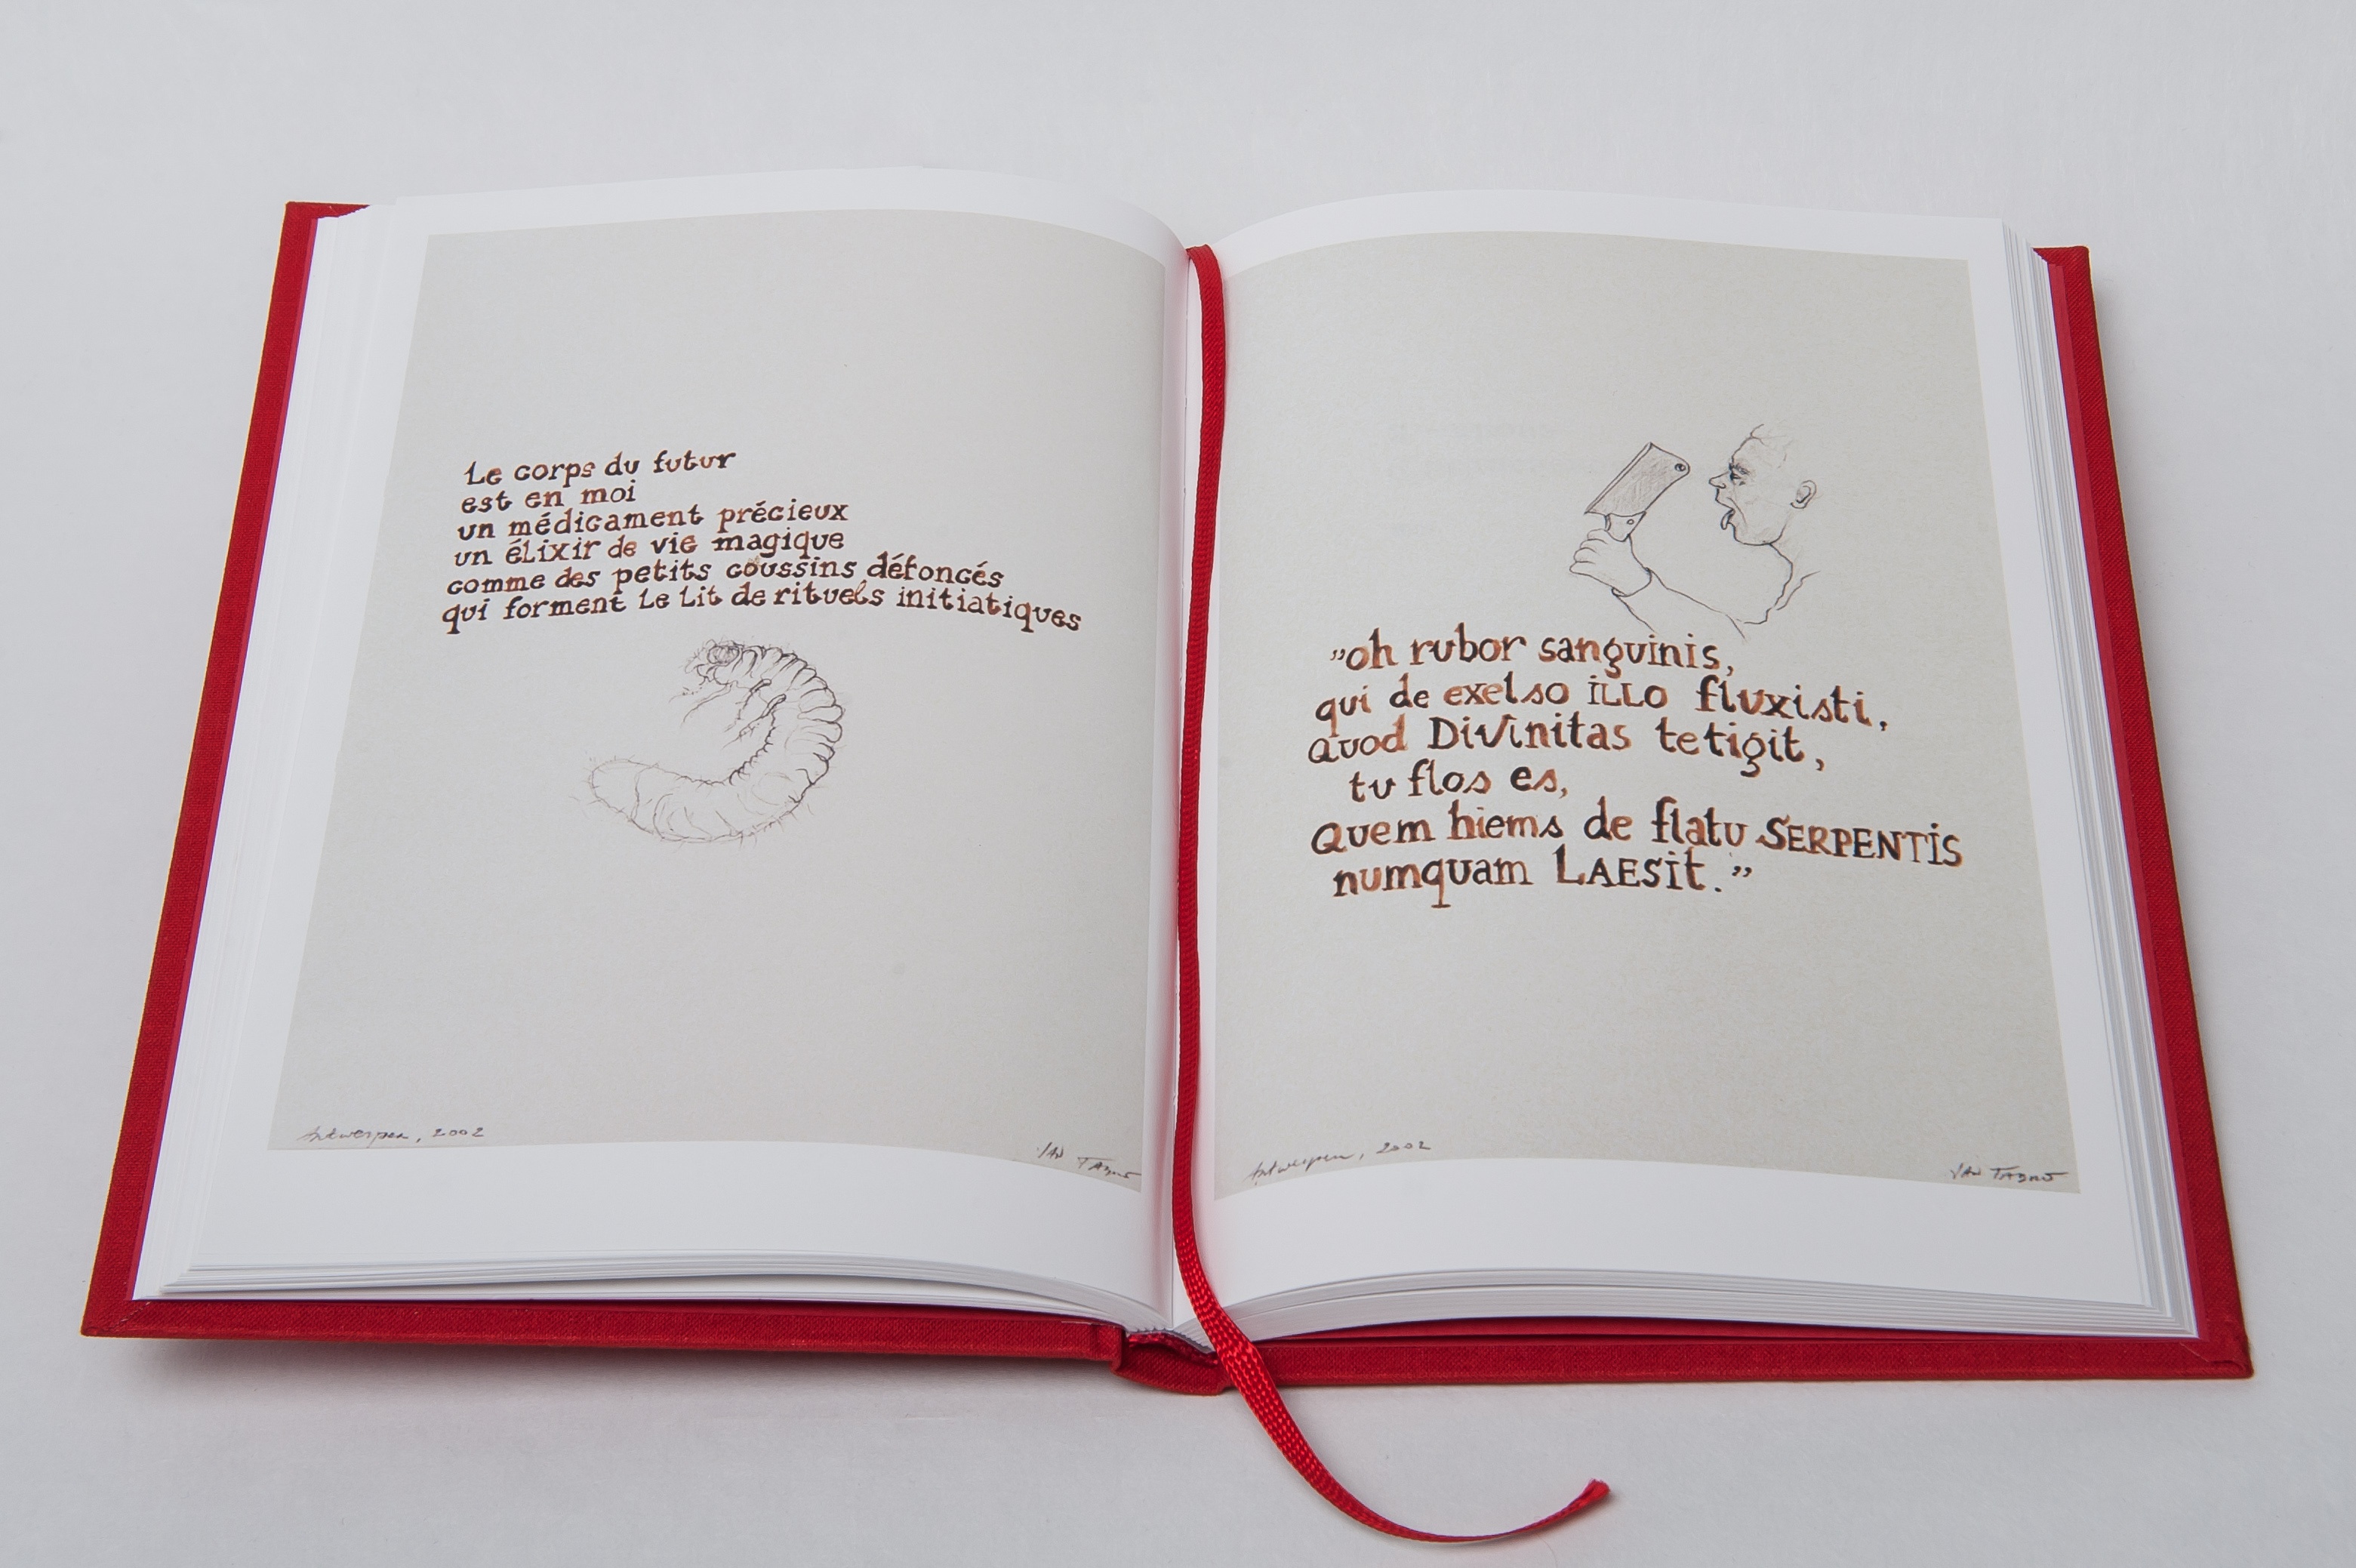 Le corps du futur
est en moi
un médicament précieux
un élixir de vie magique
comme des petits coussins défoncés
qui forment le lit de rituels initiatiques
Antwerpen, 2002
JAN FABRE
”oh rubor sanguinis,
qui de exelso iLLO fluxisti,
quod Divinitas tetigit,
tu flos es,
Quem hiems de flatu SERPENTiS
numquam LAESit.”
Antwerpen, 2002
JAN FABRE